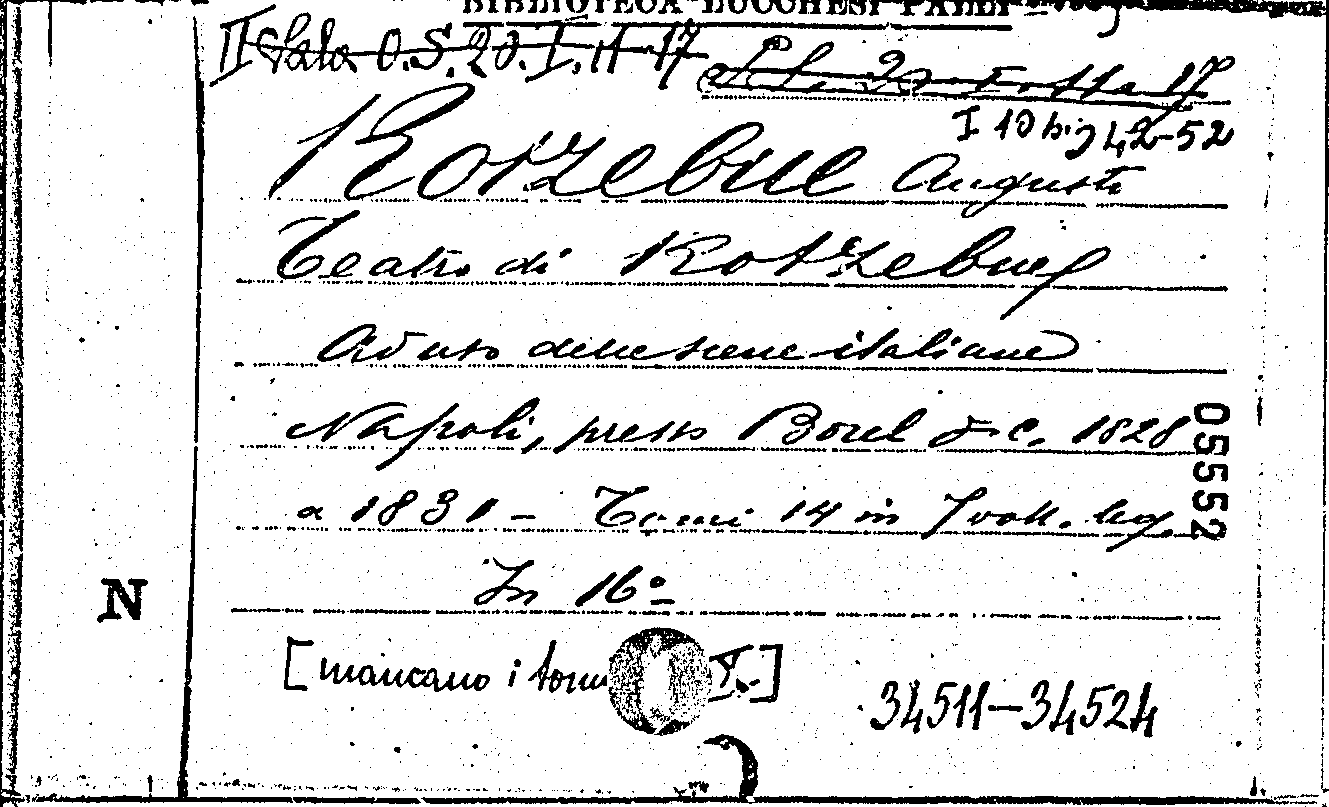 BIBLIOTECA LUCCHESI PALLI
II Sala O.S. 20. I. 11-17
I 10 big 42-52
Kotzebue Augusto
Teatro di Kotzebue
ad uso delle scene italiane
Napoli, presso Borel & C. 1828
a 1831 - Tomi 14 in 7 voll. leg.
In 16°
[mancano i tomi
34511-34524
05552
N